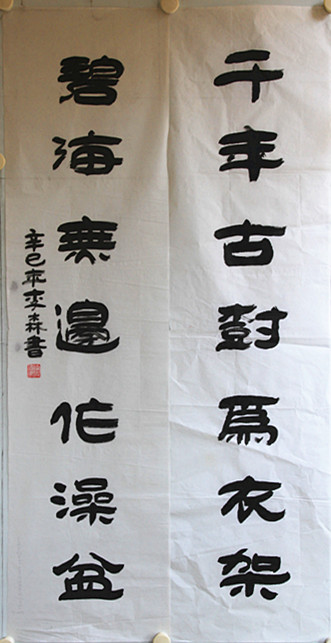 千年古樹為衣架
碧海無邊作澡盆
辛巳年李森書